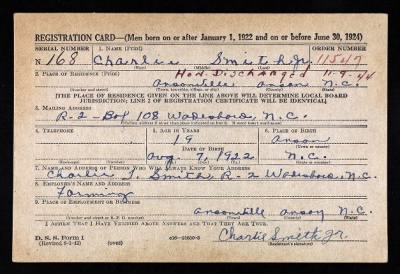 REGISTRATION CARD—(Men born on or after January 1, 1922 and on or before June 30, 1924)
SERIAL NUMBER 1. NAME (Print) ORDER NUMBER
N 168 Charlie Smith Jr. 11547
(First) (Middle) (Last)
2. PLACE OF RESIDENCE (Print) Hon. Discharged 11-9-44
Ansonville Anson N.C.
(Number and street) (Town, township, village, or city) (County) (State)
[THE PLACE OF RESIDENCE GIVEN ON THE LINE ABOVE WILL DETERMINE LOCAL BOARD
JURISDICTION; LINE 2 OF REGISTRATION CERTIFICATE WILL BE IDENTICAL]
3. MAILING ADDRESS
R-2-Box 108 Wadesboro, N.C.
4. TELEPHONE 5. AGE IN YEARS 6. PLACE OF BIRTH
19 Anson
(Town or county)
DATE OF BIRTH
Aug. 7, 1922 N.C.
(Exchange) (Number) (Mo.) (Day) (Yr.) (State or country)
7. NAME AND ADDRESS OF PERSON WHO WILL ALWAYS KNOW YOUR ADDRESS
Charlie Smith R-2 Wadesboro, N.C.
8. EMPLOYER'S NAME AND ADDRESS
Farming
9. PLACE OF EMPLOYMENT OR BUSINESS
Ansonville Anson N.C.
(Number and street or R. F. D. number) (Town) (County) (State)
I AFFIRM THAT I HAVE VERIFIED ABOVE ANSWERS AND THAT THEY ARE TRUE.
D. S. S. Form 1
(Revised 6-9-42) (over) Charlie Smith Jr.
(Registrant's signature)